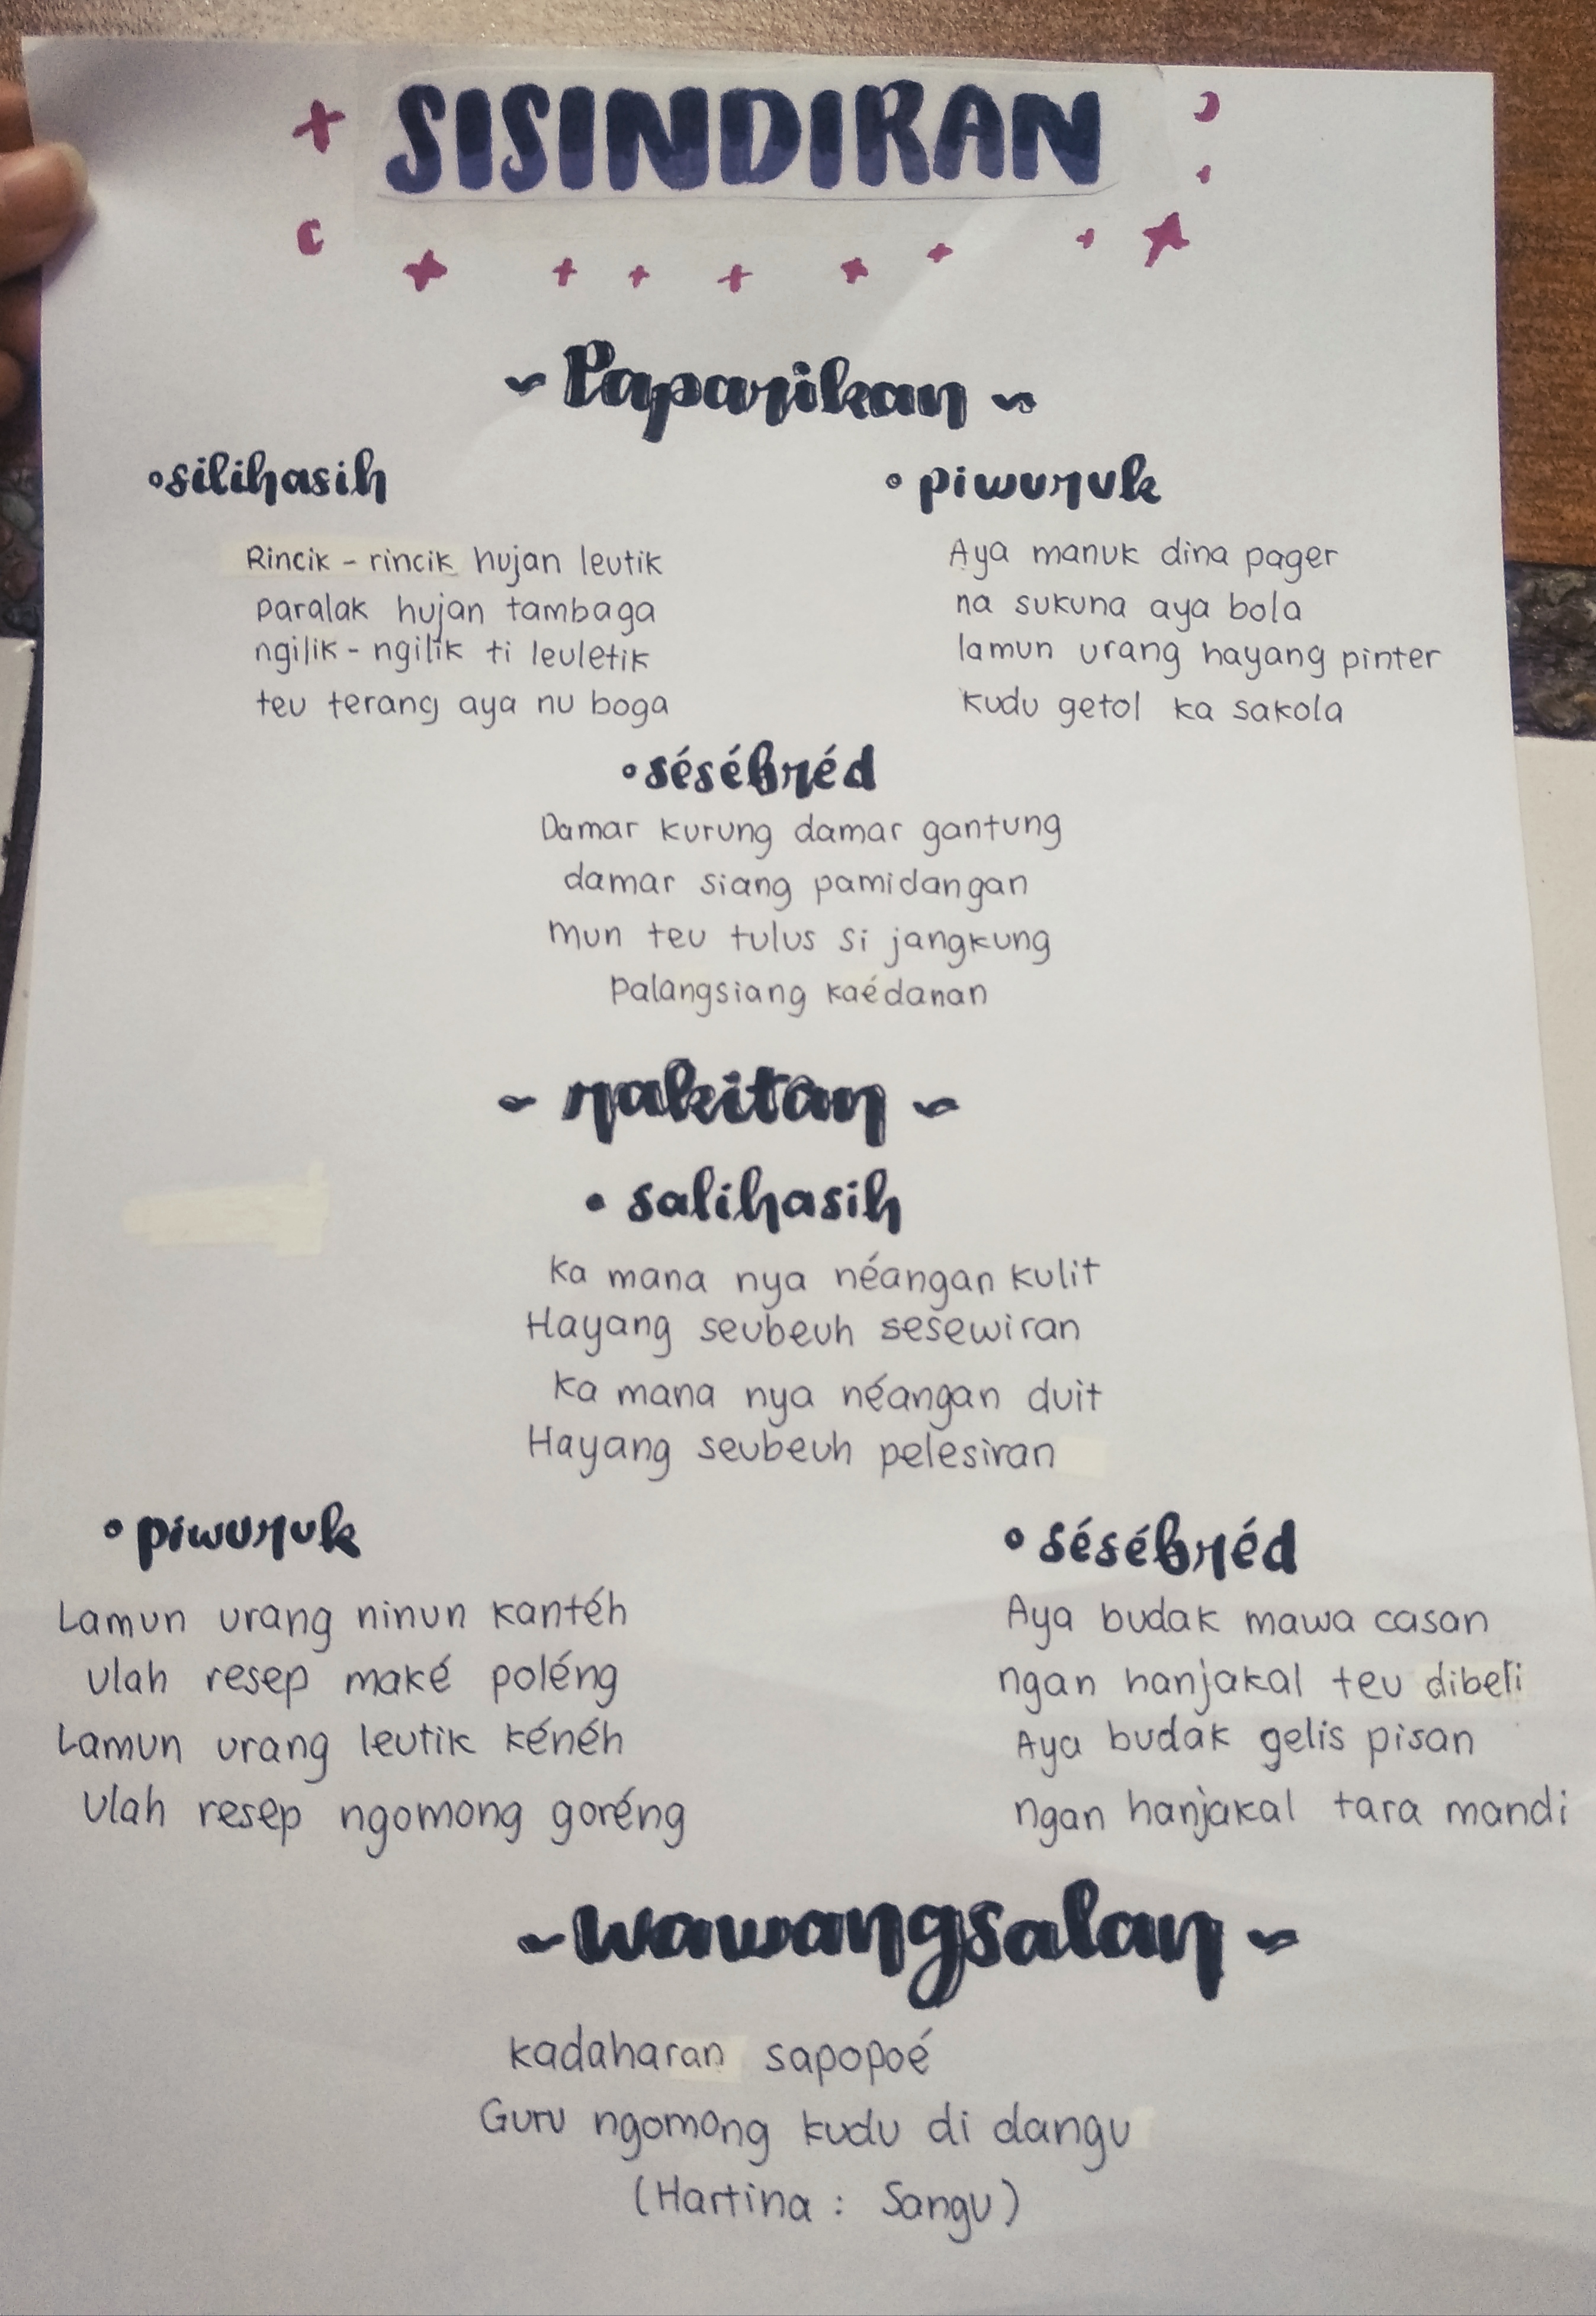 SISINDIRAN
~ Paparikan ~
•silihasih
Rincik - rincik hujan leutik
paralak hujan tambaga
ngilik - ngilik ti leuletik
teu terang aya nu boga
• piwuruk
Aya manuk dina pager
na sukuna aya bola
lamun urang hayang pinter
kudu getol ka sakola
•sésébréd
Damar kurung damar gantung
damar siang pamidangan
mun teu tulus si jangkung
palangsiang kaédanan
~ rakitan ~
• salihasih
Ka mana nya néangan kulit
Hayang seubeuh sesewiran
Ka mana nya néangan duit
Hayang seubeuh pelesiran
• piwuruk
Lamun urang ninun kantéh
ulah resep maké poléng
Lamun urang leutik kénéh
ulah resep ngomong goréng
• sésébréd
Aya budak mawa casan
ngan hanjakal teu dibeli
Aya budak gelis pisan
ngan hanjakal tara mandi
~ wawangsalan ~
kadaharan sapopoé
Guru ngomong kudu di dangu
(Hartina : Sangu)